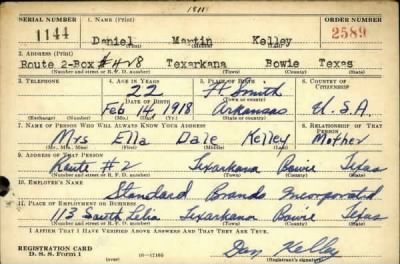 SERIAL NUMBER 1. NAME (Print) ORDER NUMBER
1144 Daniel Martin Kelley 2589
(First) (Middle) (Last)
2. ADDRESS (Print)
Route 2-Box #428 Texarkana Bowie Texas
(Number and street or R. F. D. number) (Town) (County) (State)
3. TELEPHONE 4. AGE IN YEARS 5. PLACE OF BIRTH 6. COUNTRY OF CITIZENSHIP
22 Ft Smith
DATE OF BIRTH (Town or county)
Feb 14 1918 Arkansas U.S.A.
(Exchange) (Number) (Mo.) (Day) (Yr.) (State or country)
7. NAME OF PERSON WHO WILL ALWAYS KNOW YOUR ADDRESS 8. RELATIONSHIP OF THAT PERSON
Mrs Ella Dale Kelley Mother
(Mr., Mrs., Miss) (First) (Middle) (Last)
9. ADDRESS OF THAT PERSON
Route #2 Texarkana Bowie Texas
(Number and street or R. F. D. number) (Town) (County) (State)
10. EMPLOYER'S NAME
Standard Brands Incorporated
11. PLACE OF EMPLOYMENT OR BUSINESS
113 South Lelia Texarkana Bowie Texas
(Number and street or R. F. D. number) (Town) (County) (State)
I AFFIRM THAT I HAVE VERIFIED ABOVE ANSWERS AND THAT THEY ARE TRUE.
REGISTRATION CARD
D. S. S. Form 1 Dan Kelley
(Registrant's signature)